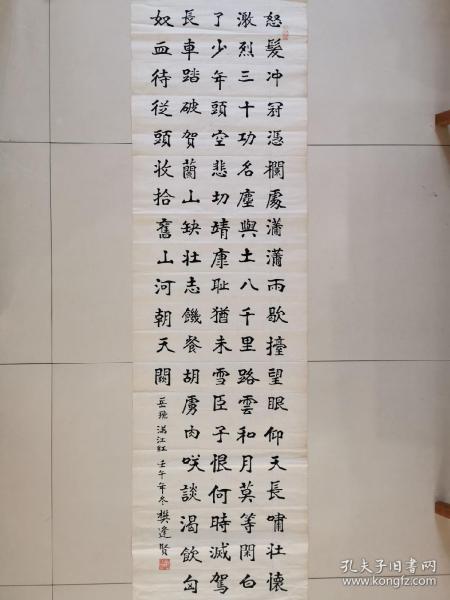 怒髮冲冠憑欄處瀟瀟雨歇擡望眼仰天長嘯壯懷
激烈三十功名塵與土八千里路雲和月莫等閑白
了少年頭空悲切靖康耻猶未雪臣子恨何時滅駕
長車踏破賀蘭山缺壯志饑餐胡虜肉咲談渴飲匈
奴血待從頭收拾舊山河朝天闕
岳飛 滿江紅 壬午年冬 樊逢賢
孔夫子旧书网